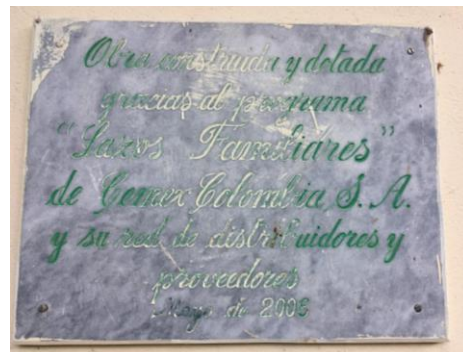 Obra construida y dotada
gracias al programa
"Lazos Familiares"
de Cemex Colombia S.A.
y su red de distribuidores y
proveedores
Mayo de 2006